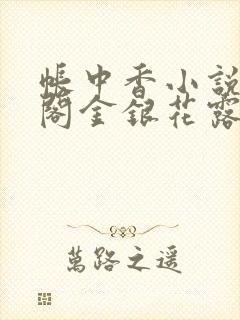 帳中香小說
閣金銀花露
萬路之遥